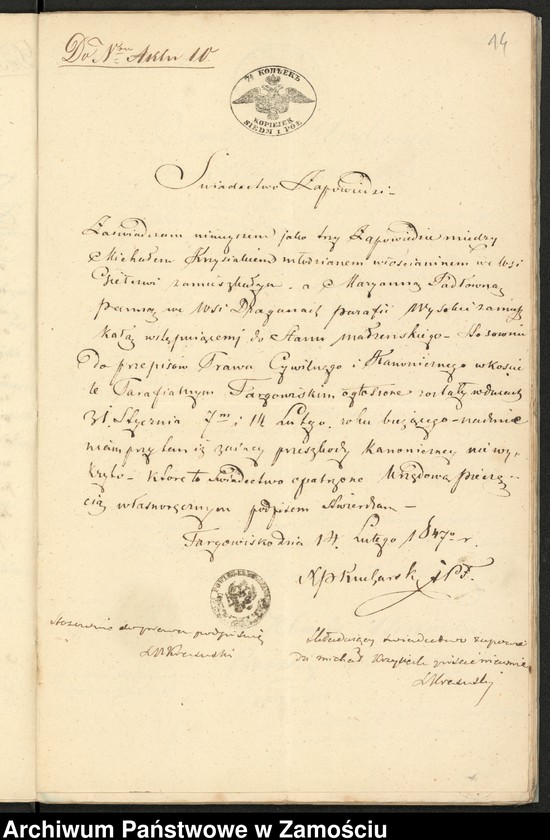 Do Nru Aktu 10.
14
7½ КОПѢЕКЪ
KOPIEJEK
SIEDM I PÓŁ
Świadectwo Zapowiedzi
Zaświadczam niniejszem jako trzy Zapowiedzie między
Michałem Krysiakiem młodzianem włościaninem we Wsi
zamieszkałym a Maryanną Padłówną
panną we Wsi Draganach parafii Wysokie zamiesz
kałą wstępującemi do Stanu małżeńskiego Stosownie
do przepisów Prawa Cywilnego i Kanonicznego w koście
le Parafialnym Targowiskim ogłoszone zostały w dniach
31. Stycznia 7m i 14 Lutego roku bieżącego nadmie
niam przytem iż żadnej przeszkody Kanonicznej nie wy
kryto które to Świadectwo opatrzone Urzędową pieczę
cią własnoręcznym podpisem stwierdzam
Targowisko dnia 14. Lutego 1847o r.
X P Kucharski
Stosownie do prawa podpisuję
Składający świadectwo zapowie
dzi michał